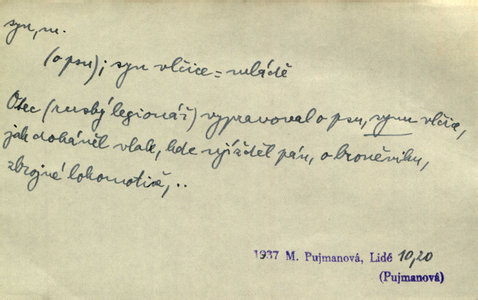 syn, m.
(o psu); syn vlčice = mládě
Otec (ruský legionář) vypravoval o psu, synu vlčice,
jak doháněl vlak, kde ujížděl pán, o broněviku,
zbrojné lokomotivě,..
1937 M. Pujmanová, Lidé 10,20
(Pujmanová)